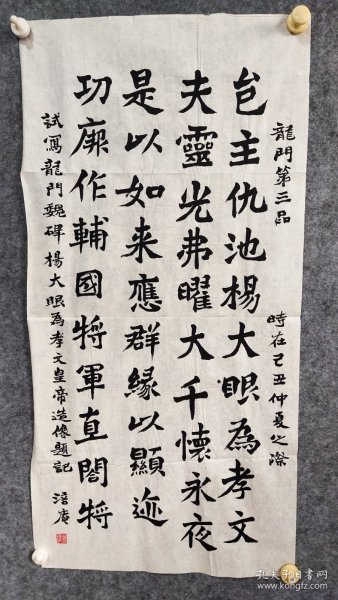 龍門第三品 時在己丑仲夏之際
邑主仇池楊大眼為孝文
夫靈光弗曜大千懷永夜
是以如来應群緣以顯迹
功厥作輔國將軍直閤將
試寫龍門魏碑楊大眼為孝文皇帝造像題記 涪庵
孔夫子旧书网
www.kongfz.com